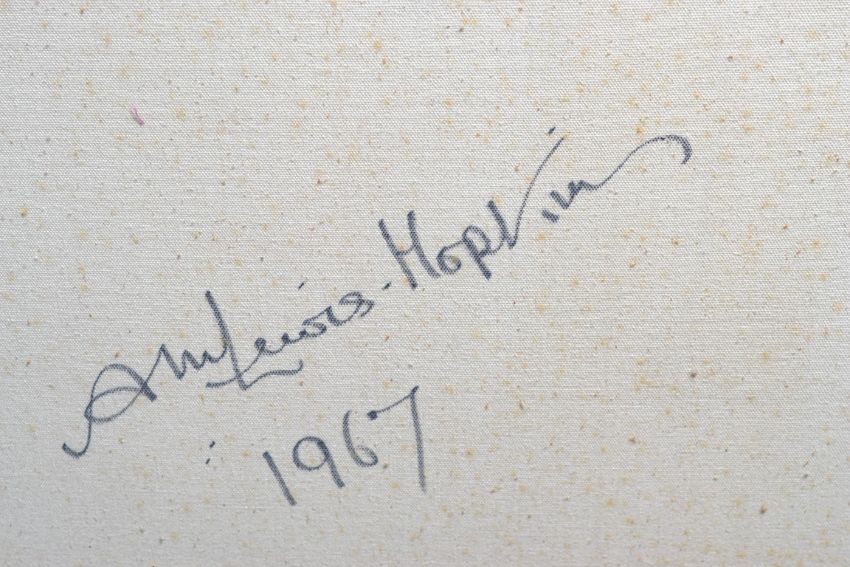 AM Lewis-Hopkins
1967